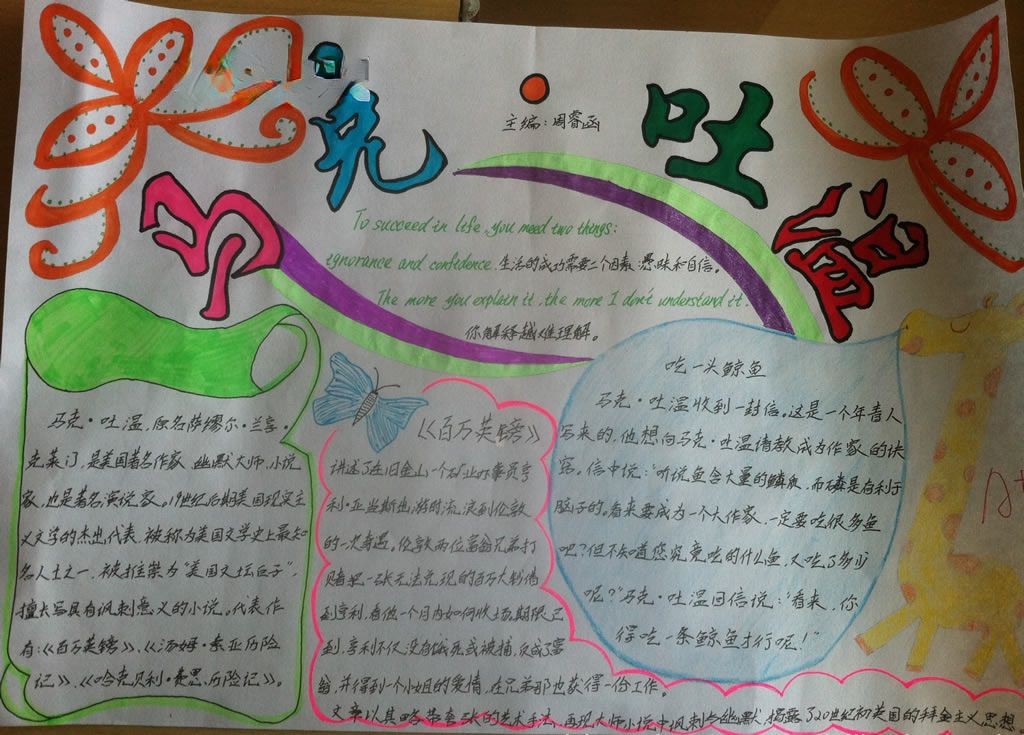 马克·吐温
主编：周睿函
To succeed in life, you need two things:
ignorance and confidence. 生活的成功需要二个因素：愚昧和自信。
The more you explain it, the more I don't understand it.
你解释越难理解。
马克·吐温，原名萨缪尔·兰亨·
克莱门，是美国著名作家、幽默大师、小说
家，也是著名演说家。19世纪后期美国现实主
义文学的杰出代表，被称为美国文学史上最知
名人士之一，被推崇为“美国文坛巨子”，
擅长写具有讽刺意义的小说。代表作
有：《百万英镑》、《汤姆·索亚历险
记》、《哈克贝利·费恩历险记》。
《百万英镑》
讲述了在旧金山一个矿业办事员亨
利·亚当斯出游时流浪到伦敦
的一次奇遇，伦敦两位富翁兄弟打
赌把一张无法兑现的百万大钞借
到亨利，看他一个月内如何收场。期限已
到，亨利不仅没有饿死或被捕，反成了富
翁，并得到一个小姐的爱情，在兄弟那也获得一份工作。
文章以其略带夸张的艺术手法，再现大师小说中讽刺与幽默，揭露了20世纪初英国的拜金主义思想。
吃一头鲸鱼
马克·吐温收到一封信。这是一个年青人
写来的，他想向马克·吐温请教成为作家的诀
窍。信中说：“听说鱼含大量的鳞，而磷是有利于
脑子的。看来要成为一个大作家，一定要吃很多鱼
吧？但不知道您究竟吃的什么鱼，又吃了多少
呢？”马克·吐温回信说：“看来，你
得吃一条鲸鱼才行呢！”